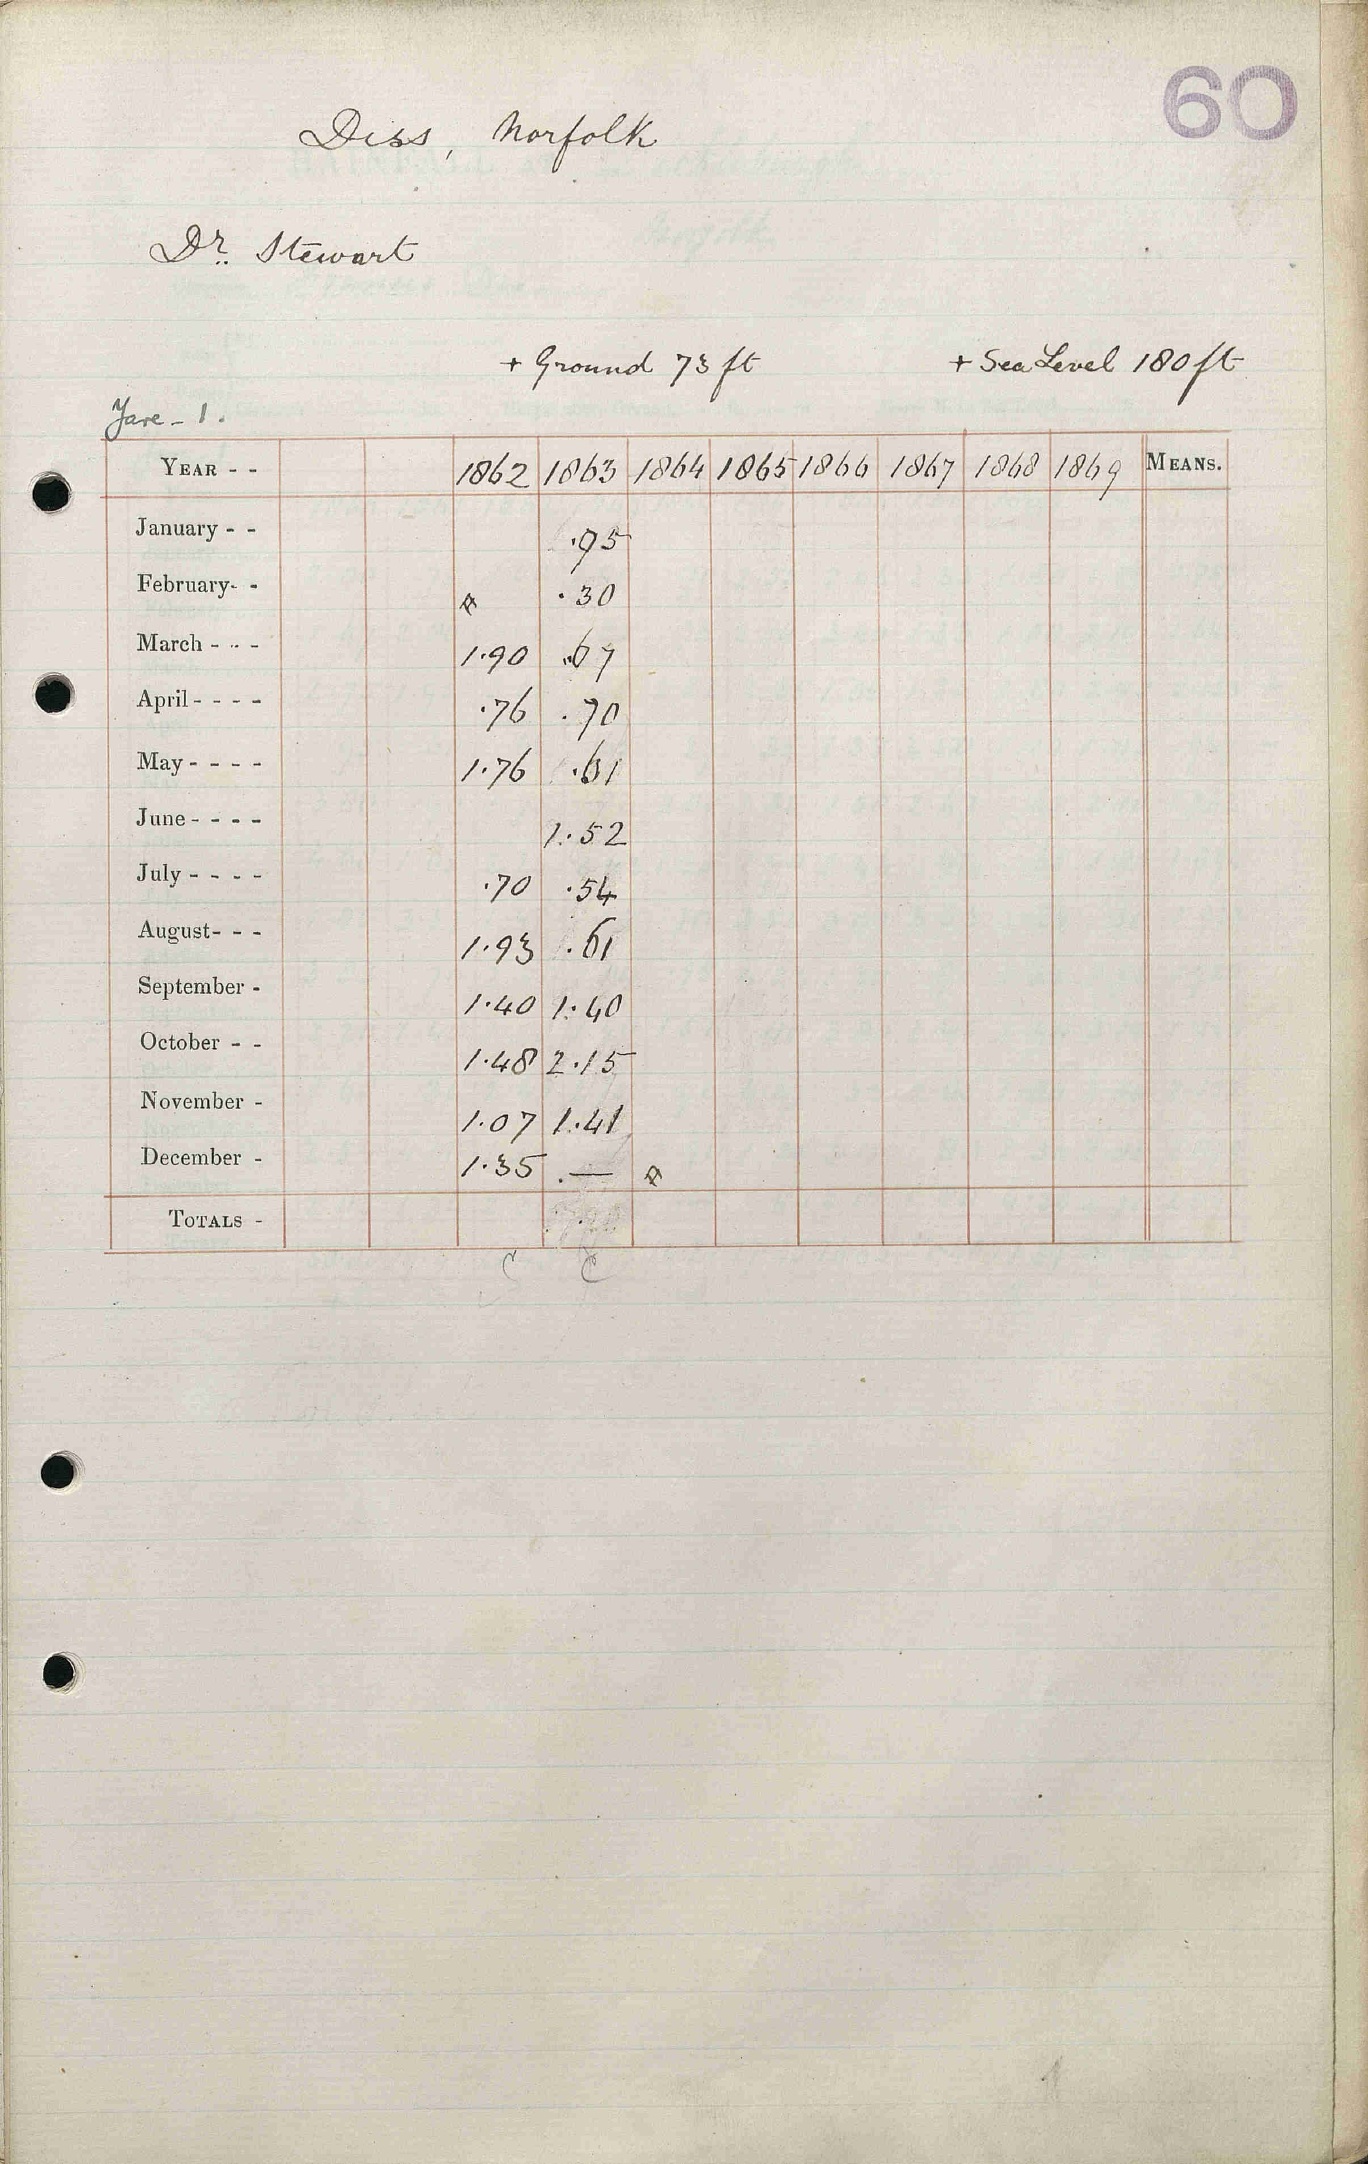 60
Diss, Norfolk
Dr. Stewart
+ Ground 73 ft + Sea Level 180 ft
Yare - 1.
YEAR - - 1862 1863 1864 1865 1866 1867 1868 1869 MEANS.
January - - .95
February- - .30
March - - - 1.90 .67
April - - - - .76 .70
May - - - - 1.76 .61
June - - - - 1.52
July - - - - .70 .54
August- - - 1.93 .61
September - 1.40 1.40
October - - 1.48 2.15
November - 1.07 1.41
December - 1.35 . —
TOTALS -
C C